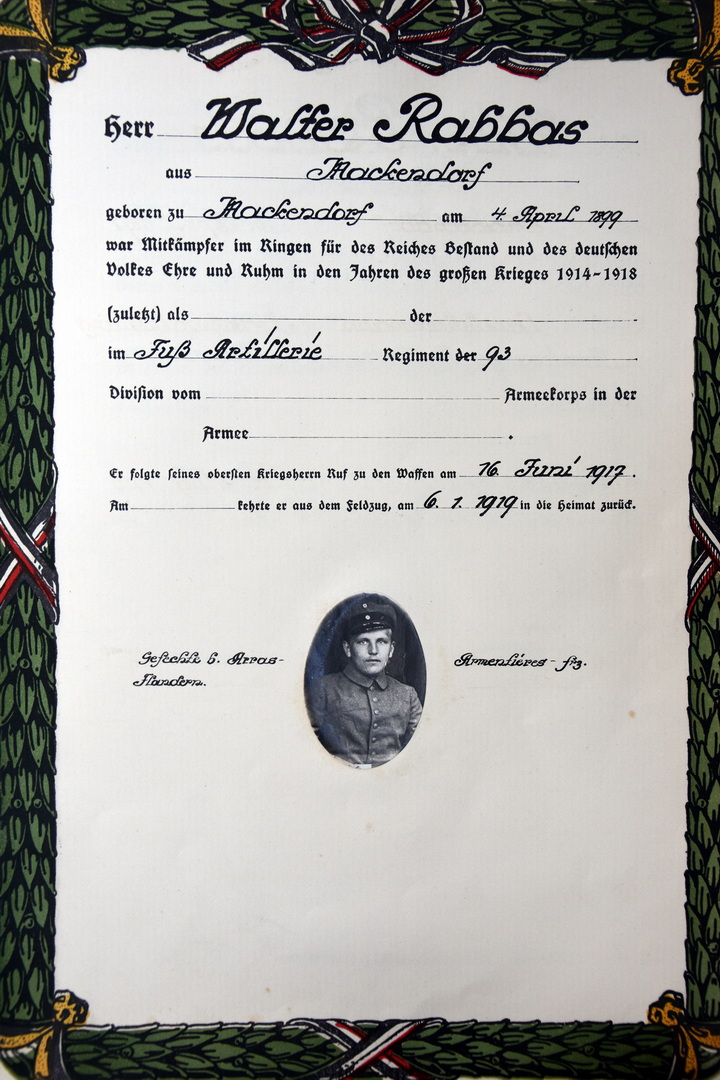 Herr Walter Rabbas
aus Mackendorf
geboren zu Mackendorf am 4. April 1899
war Mitkämpfer im Ringen für des Reiches Bestand und des deutschen
Volkes Ehre und Ruhm in den Jahren des großen Krieges 1914-1918
(zuletzt) als der
im Fuß Artillerie Regiment der 93
Division vom Armeekorps in der
Armee .
Er folgte seines obersten Kriegsherrn Ruf zu den Waffen am 16. Juni 1917.
Am kehrte er aus dem Feldzug, am 6. 1. 1919 in die Heimat zurück.
Gefechte b. Arras-
Flandern.
Armentiéres - frz.